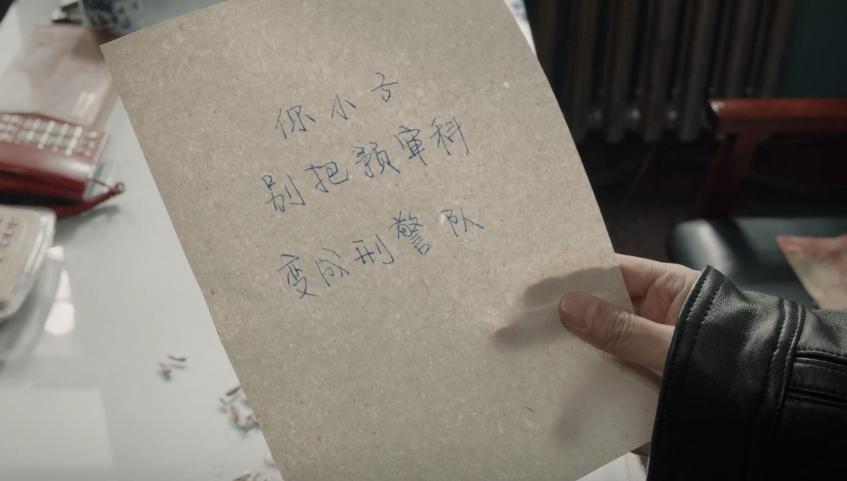 你小方
别把预审科
变成刑警队.